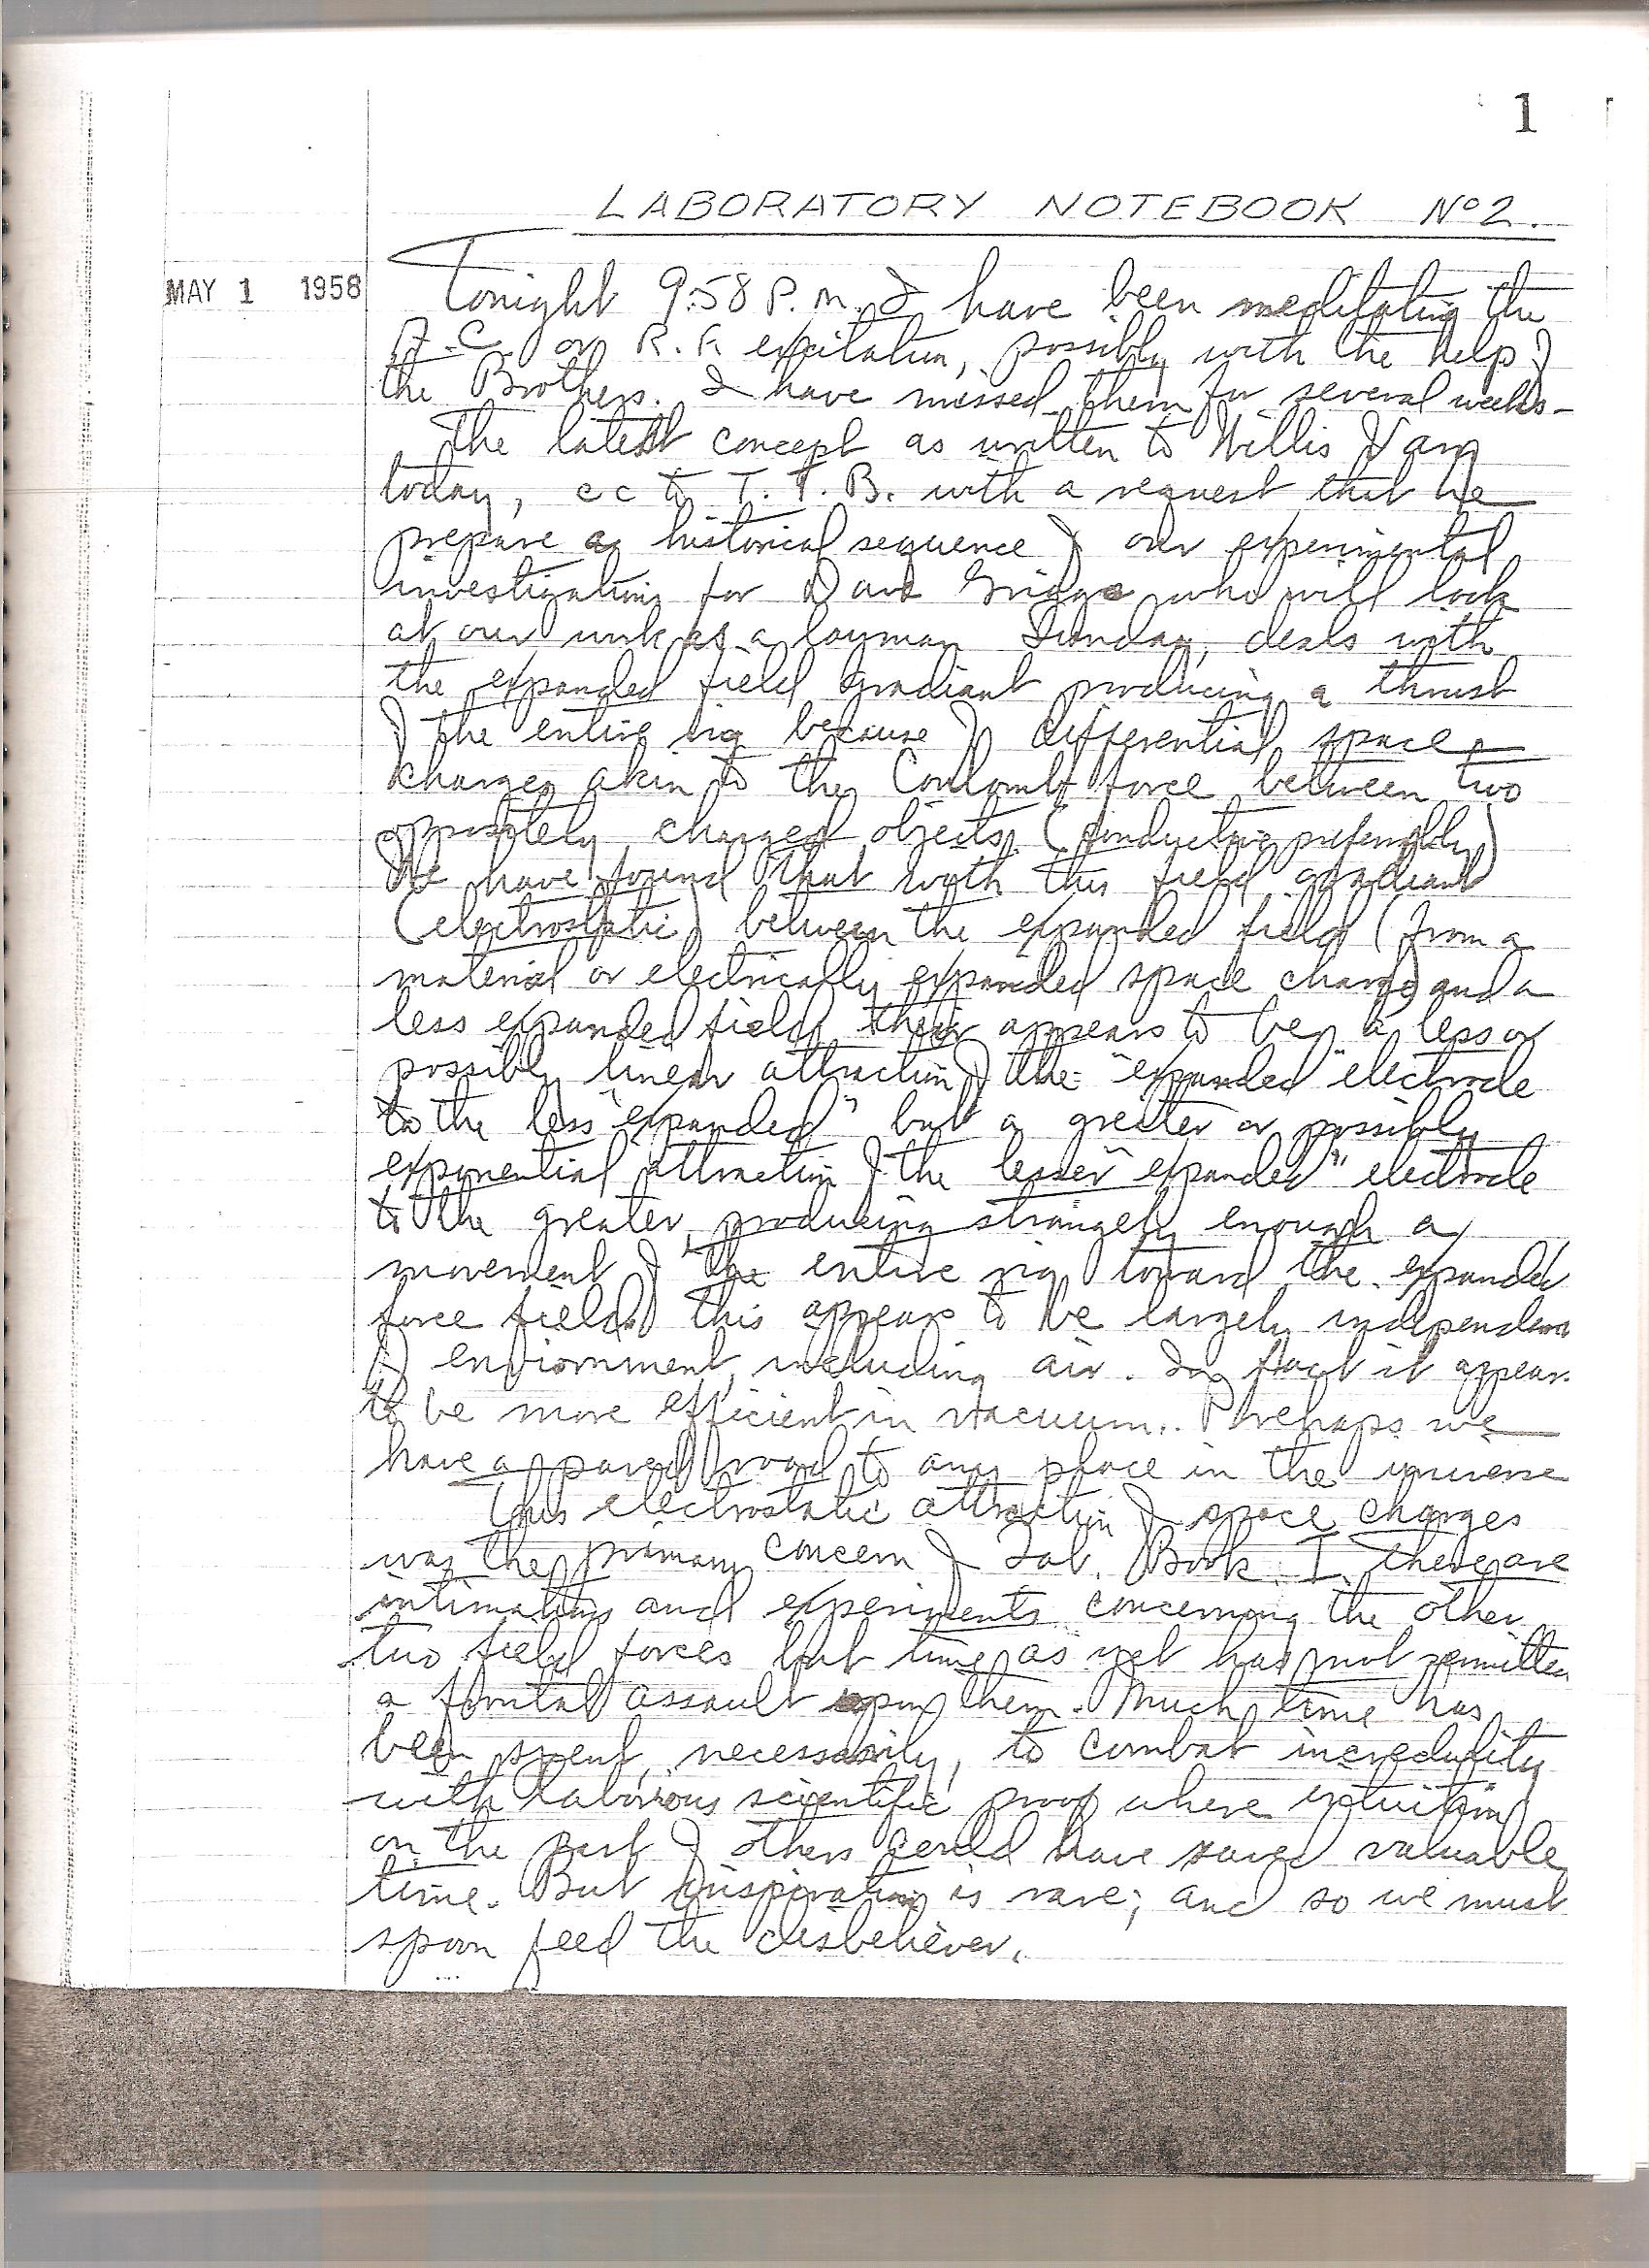 1
LABORATORY NOTEBOOK Nº 2.
MAY 1 1958
Tonight 9:58 P.M. I have been meditating the
A.C. or R.F. excitation, possibly with the help of
the Brothers. I have missed them for several weeks -
The latest concept as written to Willis
today, cc to T.T.B. with a request that he
prepare a historical sequence of our experimental
investigations for Dave Griggs who will look
at our work as a layman Sunday, deals with
the expanded field gradiant producing a thrust
of the entire rig because of differential space
charges akin to the Coulomb force between two
oppositely charged objects. (conductive preferrably)
We have found that with this field gradiant
(electrostatic) between the expanded field (from a
material or electrically expanded space charge) and a
less expanded field their appears to be a less or
possibly linear attraction of the "expanded" electrode
to the less "expanded" but a greater or possibly
exponential attraction of the lesser "expanded" electrode
to the greater, producing strangely enough a
movement of the entire rig toward the expanded
force field. This appears to be largely independent
of enviornment, including air. In fact it appears
to be more efficient in vacuum.. Perhaps we
have a paved road to any place in the universe
This electrostatic attraction of space charges
was the primary concern of Lab. Book I. There are
intimations and experiments concerning the other
two field forces but time as yet has not permitted
a frontal assault upon them. Much time has
been spent, necessarily, to combat incredulity
with laborious scientific proof where intuition
on the part of others could have saved valuable
time. But inspiration is rare; and so we must
spoon feed the disbeliever.